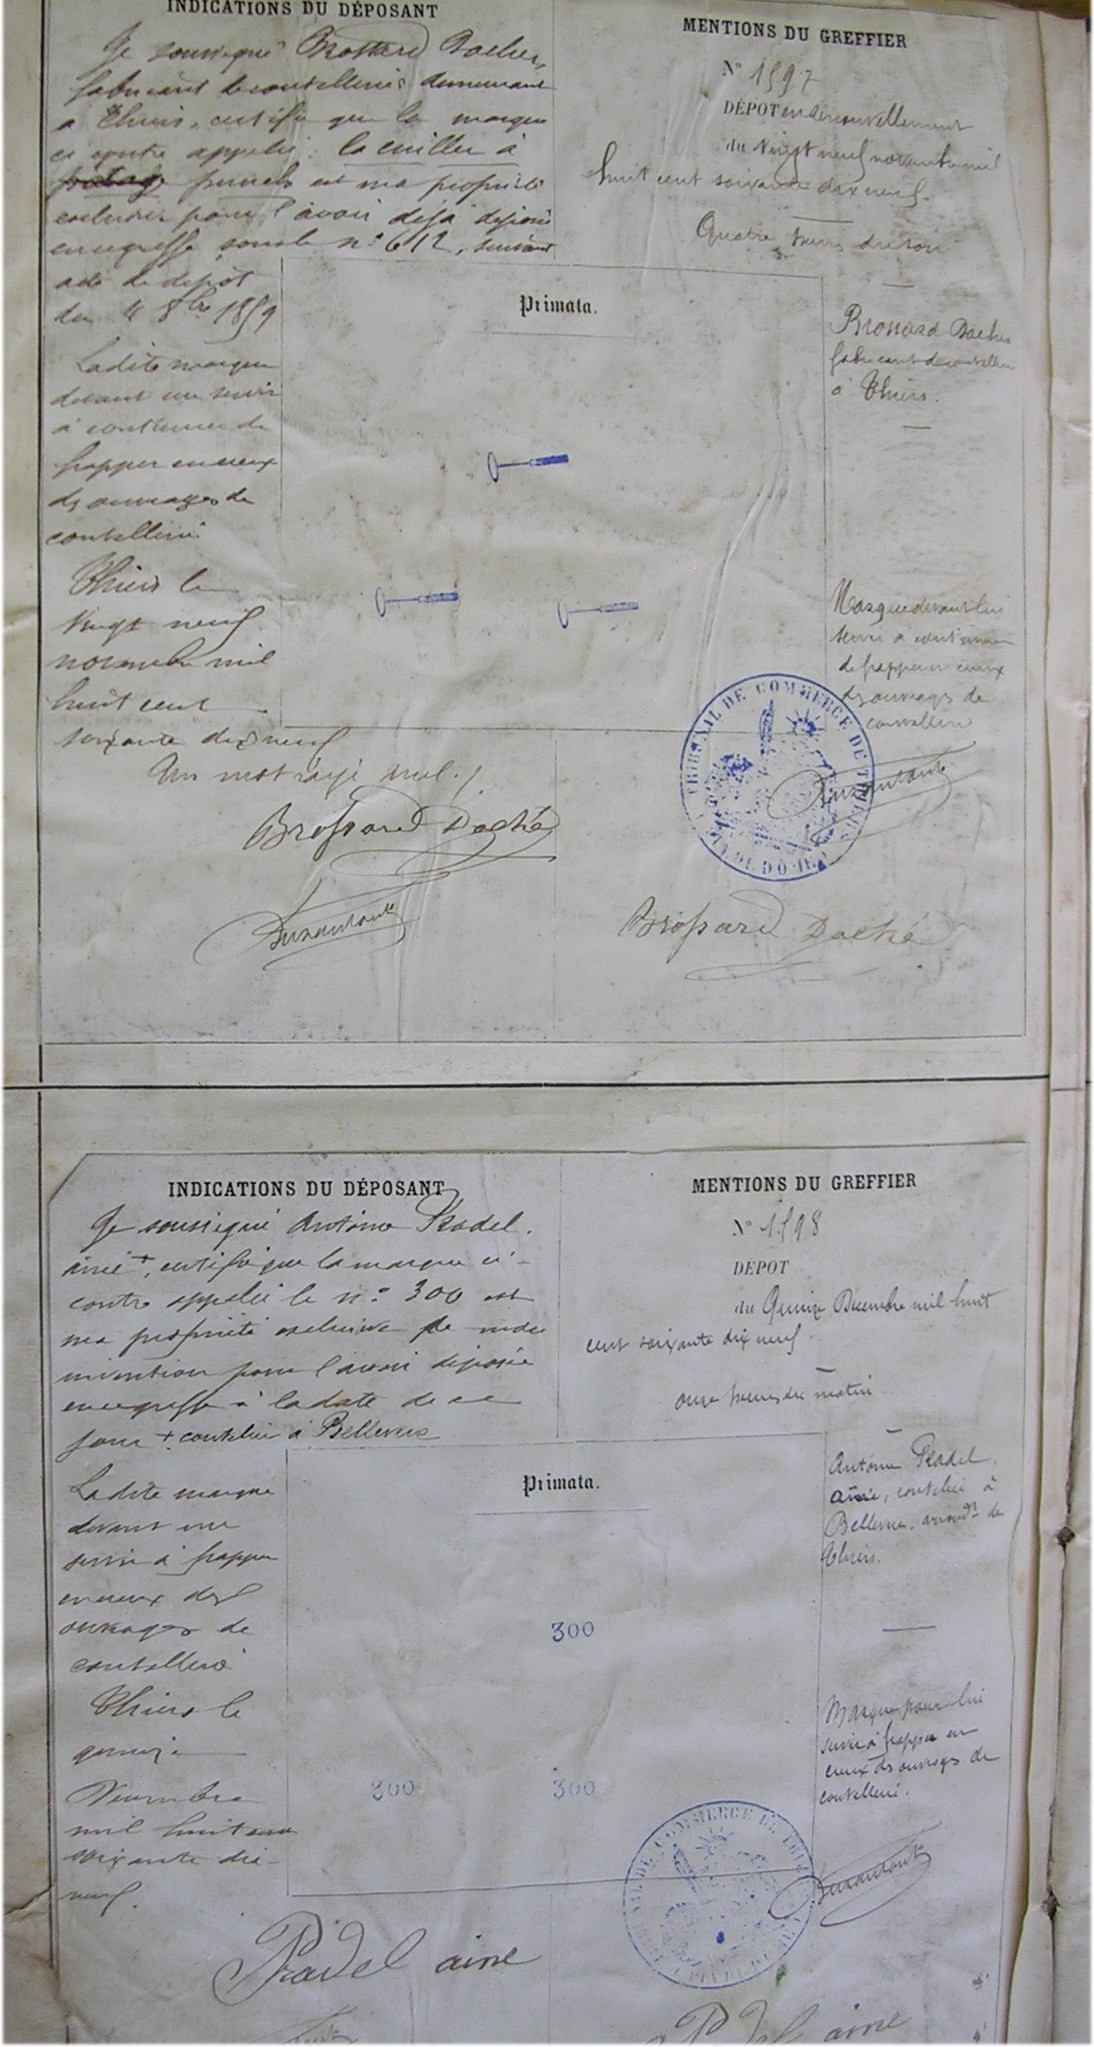 INDICATIONS DU DÉPOSANT
Je soussigné Brossard Dacher,
fabricant de coutellerie demeurant
à Thiers, certifie que la marque
ci contre appelée : la cuiller à
punch est ma propriété
exclusive pour l'avoir déjà déposée
au greffe sous le n° 612, suivant
acte de dépôt
du 4 8bre 1859
Ladite marque
devant me servir
à continuer de
frapper en creux
des ouvrages de
coutellerie
Thiers le
vingt neuf
novembre mil
huit cent
soixante dix neuf
Un mot rayé nul.
Brossard Daché
MENTIONS DU GREFFIER
N° 1597
DÉPOT en renouvellement
du vingt neuf novembre mil
huit cent soixante dix neuf.
Quatre heures du soir
Primata.
Brossard Dacher
fabricant de coutellerie
à Thiers.
Marque devant lui
servir à continuer
de frapper en creux
des ouvrages de
coutellerie
TRIBUNAL DE COMMERCE DE THIERS
PUY DE DÔME
Brossard Daché
INDICATIONS DU DÉPOSANT
Je soussigné Antoine Pradel
ainé +, certifie que la marque ci-
contre appelée le n° 300 est
ma propriété exclusive de mon
invention pour l'avoir déposée
au greffe à la date de ce
jour + coutelier à Bellevue
Ladite marque
devant me
servir à frapper
en creux des
ouvrages de
coutellerie
Thiers le
quinze
Décembre
mil huit cent
soixante dix-
neuf.
Pradel ainé
MENTIONS DU GREFFIER
N° 1598
DÉPOT
du Quinze Décembre mil huit
cent soixante dix neuf.
onze heures du matin
Primata.
300
300 300
Antoine Pradel
ainé, coutelier à
Bellevue, arrondt de
Thiers.
Marque pour lui
servir à frapper en
creux des ouvrages de
coutellerie.
TRIBUNAL DE COMMERCE DE THIERS
Pradel ainé